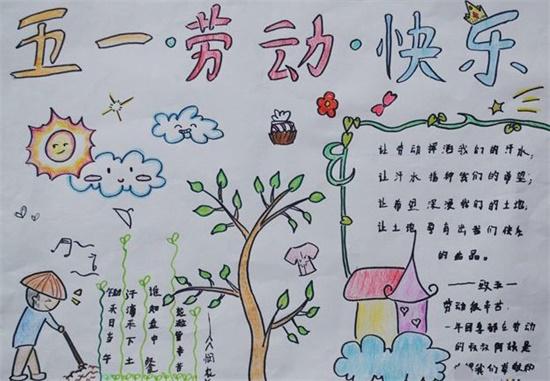 五一·劳动·快乐
让劳动挥洒我们的汗水,
让汗水播种我们的希望;
让希望深浸我们的土地,
让土地孕育出我们快乐
的
——致五一
劳动很辛苦
一年四季都在劳动
的叔叔阿姨是
我们
锄禾日当午
汗滴禾下土
谁知盘中餐
粒粒皆辛苦
——悯农